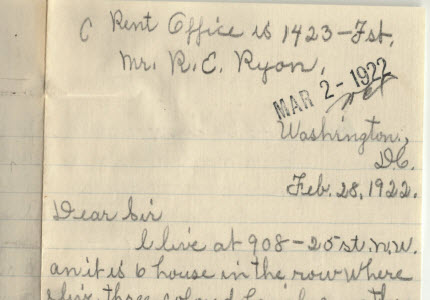 C Rent Office is 1423-Fst.
Mr. R. E. Ryon,
MAR 2-1922
Washington,
D.C.
Feb. 28, 1922.
Dear Sir
I live at 908-25st. n.w.
an it is 6 house in the row where